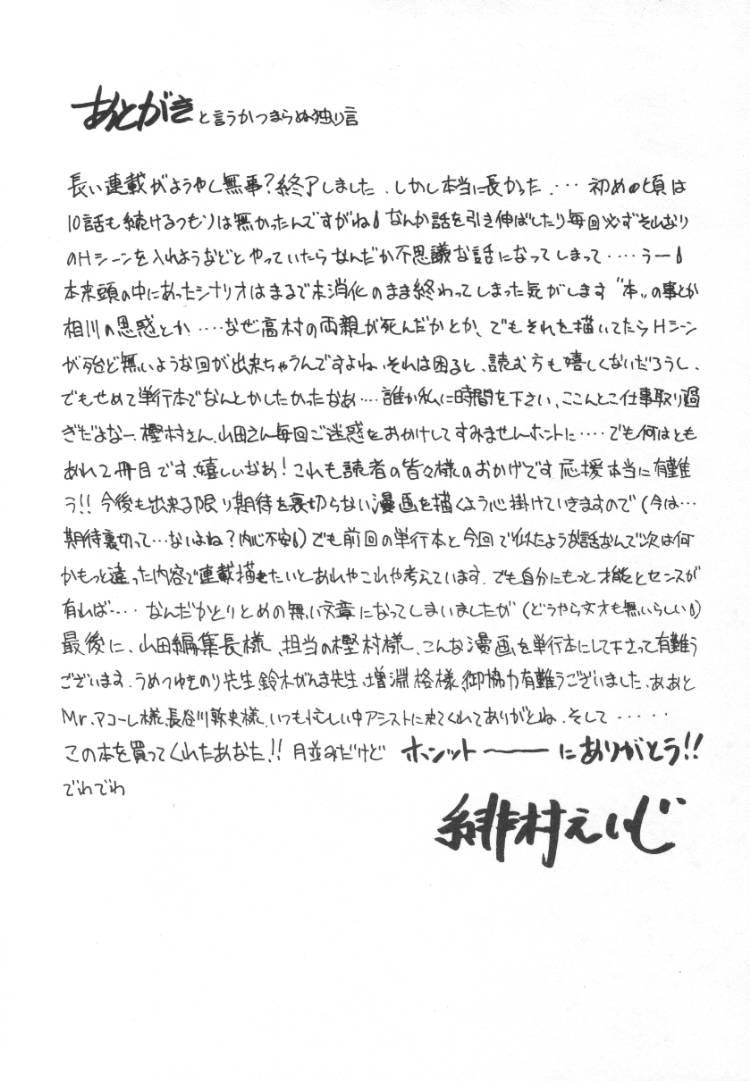 あとがき と言うかつまらぬ独り言
長い連載がようやく無事?終了しました、しかし本当に長かった、… 初めの頃は
10話も続けるつもりは無かったんですがね なんか話を引き伸ばしたり毎回必ずそれなり
のHシーンを入れようなどとやっていたらなんだか不思議な話になってしまって‥‥うー
本来頭の中にあったシナリオはまるで未消化のまま終わってしまった気がします “本”の事とか
相川の思惑とか‥‥なぜ高村の両親が死んだかとか、でもそれを描いてたらHシーン
が殆ど無いような回が出来ちゃうんですよね、それは困ると、読む方も嬉しくないだろうし、
でもせめて単行本でなんとかしたかったなあ‥‥誰か私に時間を下さい、ここんとこ仕事取り過
ぎだよなー、樫村さん、山田さん毎回ご迷惑をおかけしてすみませんホントに‥‥でも何はとも
あれ2冊目です、嬉しいなあ!これも読者の皆々様のおかげです 応援本当に有難
う!!今後も出来る限り期待を裏切らない漫画を描くよう心掛けていきますので(今は…
期待裏切って…ないよね?内心不安)でも前回の単行本と今回で似たような話なんで次は何
かもっと違った内容で連載描きたいとあれやこれや考えています、でも自分にもっと才能とセンスが
有れば‥‥ なんだかとりとめの無い文章になってしまいましたが(どうやら文才も無いらしい)
最後に、山田編集長様、担当の樫村様、こんな漫画を単行本にして下さって有難う
ございます、うめつゆきのり先生、鈴木がんま先生、増淵格様、御協力有難うございました、ああと
Mr.アコーレ様、長谷川幹史様、いつも忙しい中アシストに来てくれてありがとね、そして‥‥‥
この本を買ってくれたあなた!!月並みだけど ホンット――にありがとう!!
でわでわ
緋村えいじ